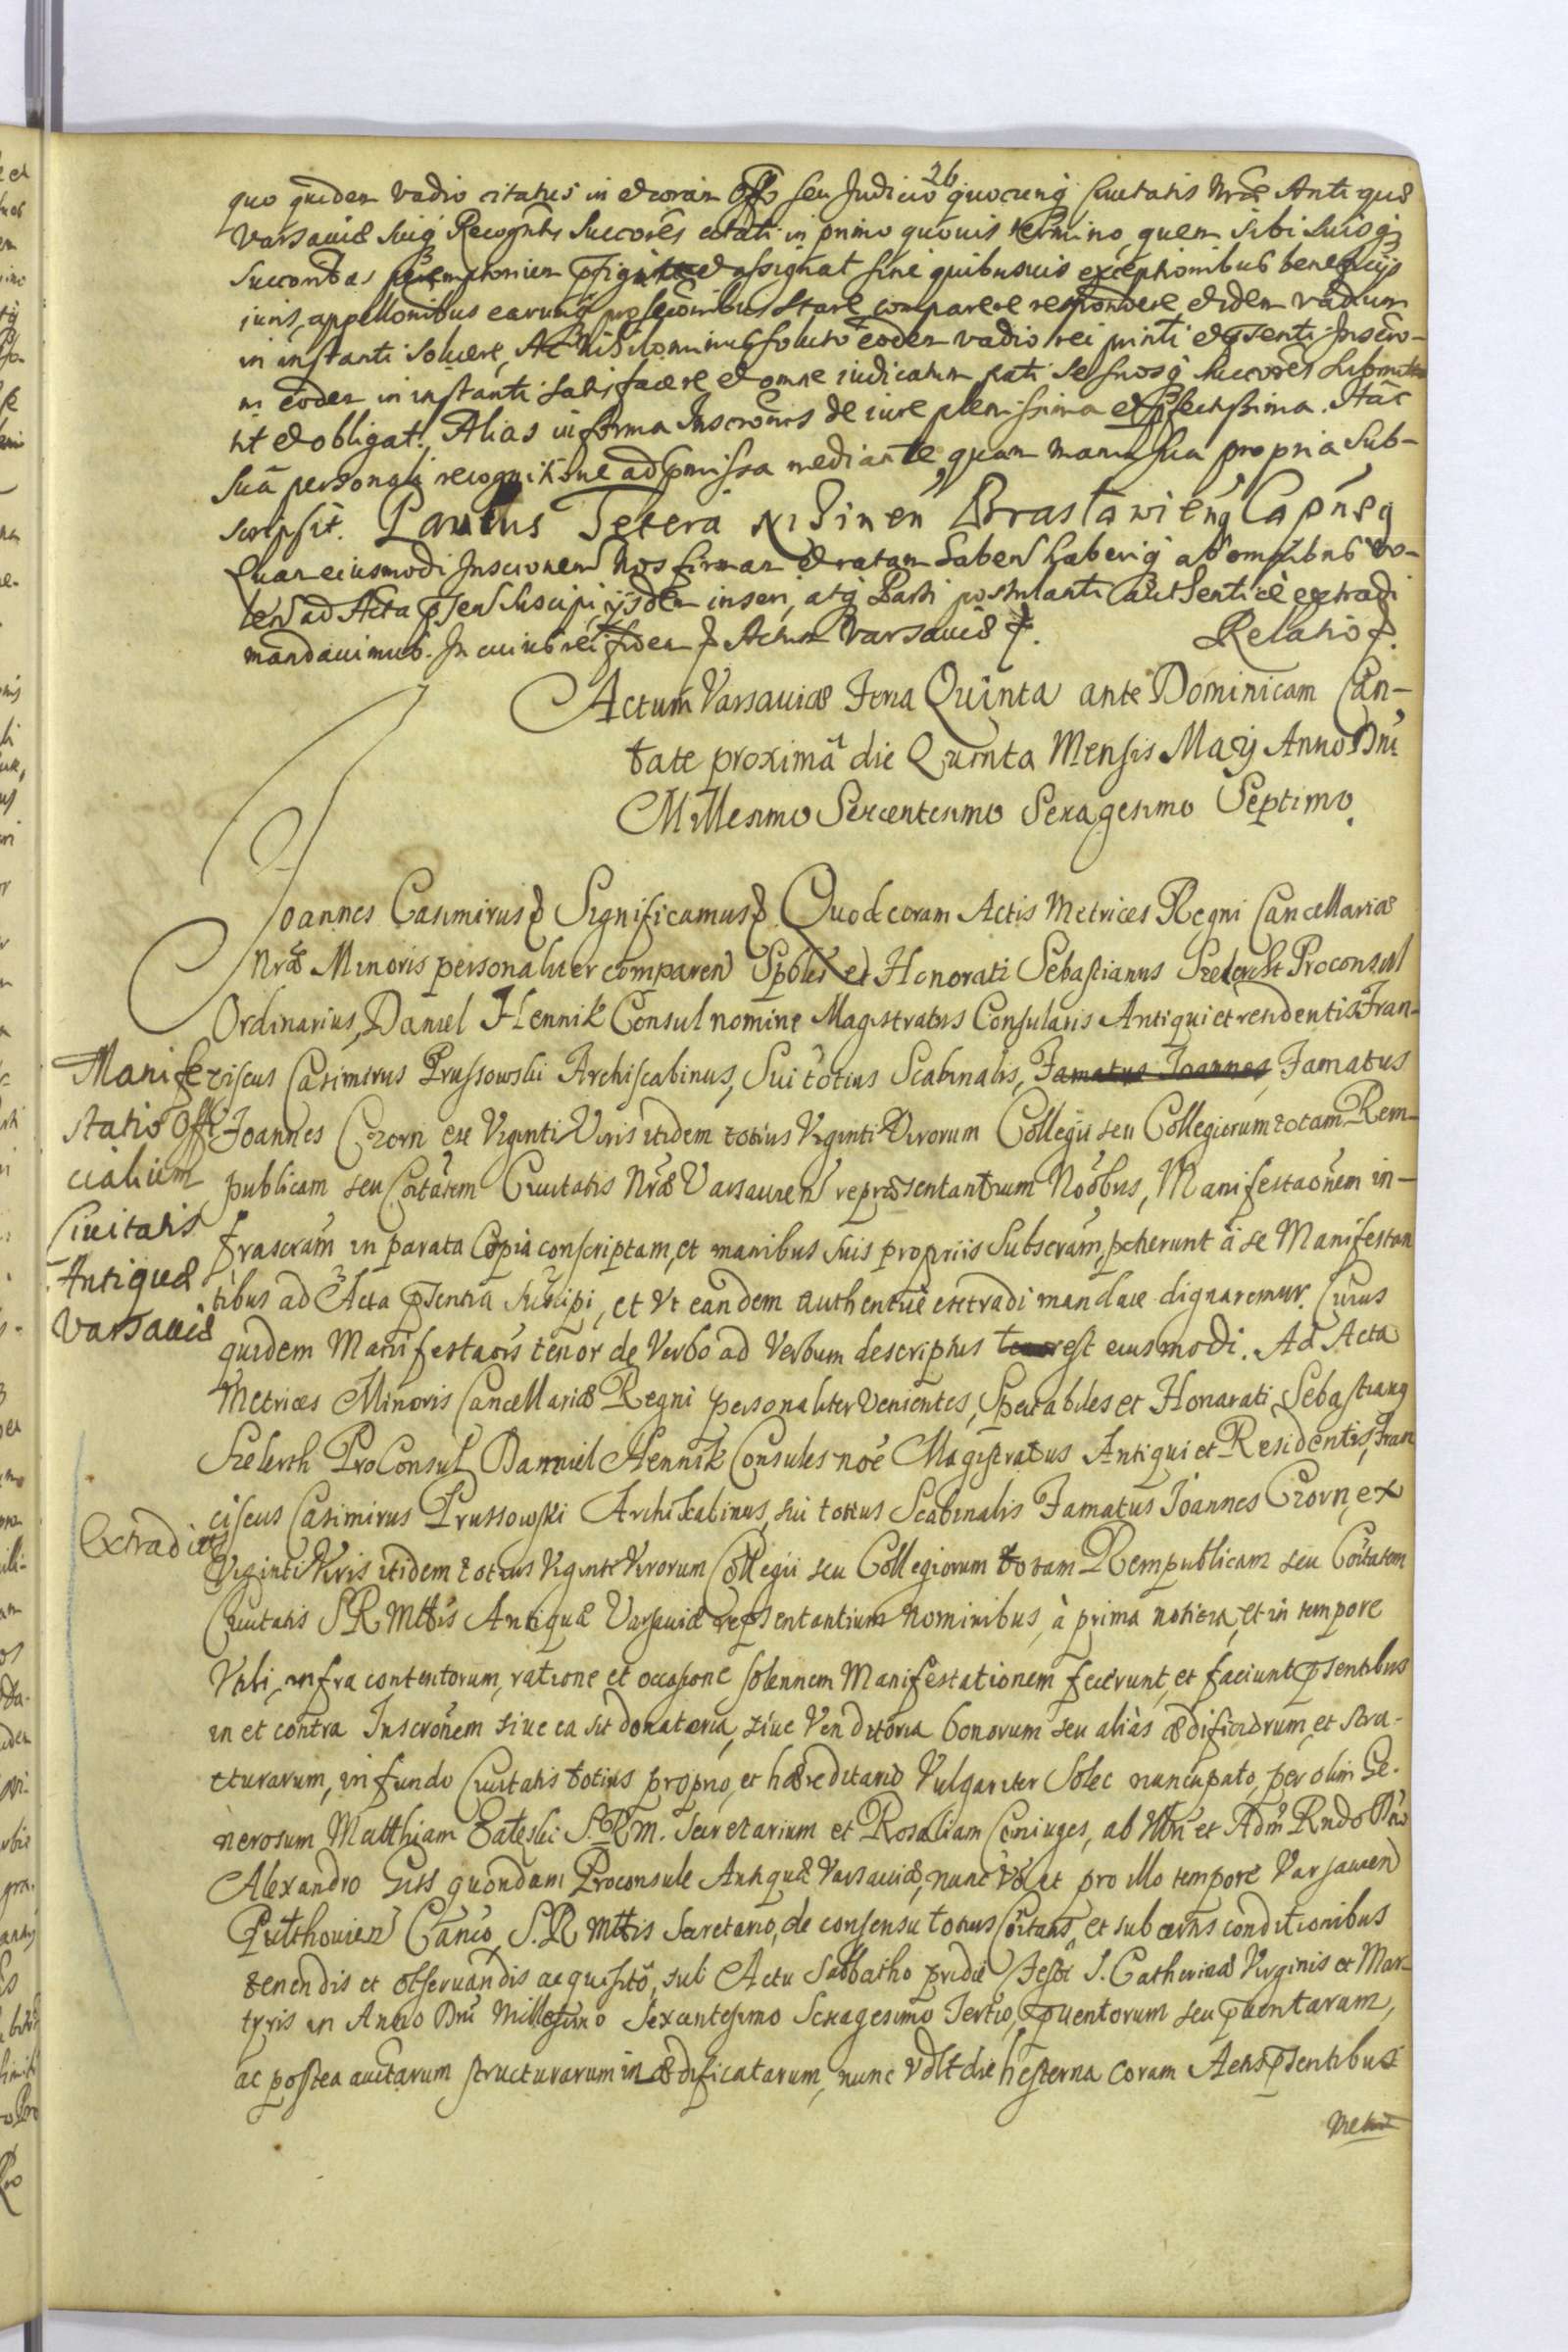 26
quo quidem vadio citatus in et coram Offo seu Judicio quocunq Civitatis Nræ Antiquæ
Varsaviæ suiq Recogntis Succores citati in primo quovis termino, quem sibi suisq
Succoribus peremptorium pfigit et assignat sine quibusvis exceptionibus beneficijs
juris, appellonibus earumq prosecõnibus stare comparere respondere et idem vadium
in instanti solvere, Ac nihilominus soluto eodem vadio rei printi et psenti Inscro-
ni eodem in instanti satisfacere et omne iudicatum pati se suosq succores submitt
it et obligat. Alias in forma Inscronis de iure plenissima et pfectissima. Hac
sua personali recognitione ad pmissa mediante, quam manu sua propria sub-
scripsit. Paulus Tetera Nidinen Brastawienq Capneq
Quam eiusmodi Inscronem Nos firmam et ratam haberi haberiq ab omnibus vo-
len ad Acta psen suscipi, ijsdem inseri, atq Parti postulanti authenticè extradi
mandavimus. In cuius rei fidem Actum Varsaviæ
Relatio
Actum Varsaviæ Feria Quinta ante Dominicam Can-
tate proximâ die Quinta Mensis Maij Anno Dni
Millesimo Sexcentesimo Sexagesimo Septimo.
Joannes Casimirus Significamus Quod coram Actis Metrices Regni Cancellariæ
Nræ Minoris personaliter comparen Spbles et Honorati Sebastianus Szelerth Proconsul
Ordinarius, Daniel Hennik Consul nomine Magistratus Consularis Antiqui et residentis, Fran-
Manife ciscus Casimirus Prussowski Archiscabinus, Sui totius Scabinalis, Famatus Joannes, Famatus
statio Offi Joannes Czorn ex Viginti Viris itidem totius Viginti Virorum Collegii seu Collegiorum totam Rem-
cialium publicam seu Coitatem Civitatis Nræ Varsavien repræsentantium Noobus, Manifestaonem in-
Civitatis frascram in parata Copia conscriptam, et manibus suis propriis Subscram, petierunt à se Manifestan
Antiquæ tibus ad Acta psentia suscipi, et Vt eandem authenticè extradi mandare dignaremur. Cuius
Varsaviæ quidem Manifestaois tenor de Verbo ad Verbum descriptus tenor est eiusmodi. Ad Acta
Metrices Minoris Cancellariæ Regni personaliter Venientes, Spectabiles et Honorati Sebastianq
Szelerth ProConsul Danniel Hennik Consules noe Magistratus Antiqui et Residentis, Fran
ciscus Casimirus Prussowski Archiscabinus, sui totius Scabinalis Famatus Joannes Czorn, ex
Extradit Viginti Viris itidem totius Viginti Virorum Collegii seu Collegiorum totam Rempublicam seu Coitatem
Civitatis S R Mttis Antiquæ Varsaviæ repsentantium nominibus, à prima notitia, et in tempore
Vbi, infra contentorum, ratione et occasione solennem Manifestationem fecerunt, et faciunt psentibus
in et contra Inscronem sive ea sit donatoria, sive Venditoria bonorum seu aliàs ædificiorum, et stru-
cturarum, in fundo Civitatis totius proprio, et hæreditario Vulgariter Solec nuncupato, per olim Ge-
nerosum Matthiam Zateski S. R M. Secretarium et Rosaliam Coniuges, ab Vbri et Adm Rndo Dno
Alexandro Giss quondam Proconsule Antiquæ Varsaviæ, nunc Vo et pro illo tempore Varsavien
Pulthovien Canco, S. R Mttis Secretario, de consensu totius Coitatis, et sub certis conditionibus
tenendis et observandis acquisito, sub Actu Sabbatho pridie Festi S. Catherinæ Virginis et Mar-
tyris in Anno Dni Millesimo Sexcentesimo Sexagesimo Tertio, pventorum seu pventarum,
ac postea auctarum structurarum inædificatarum, nunc Volt die hesterna coram Actis psentibus
Metri